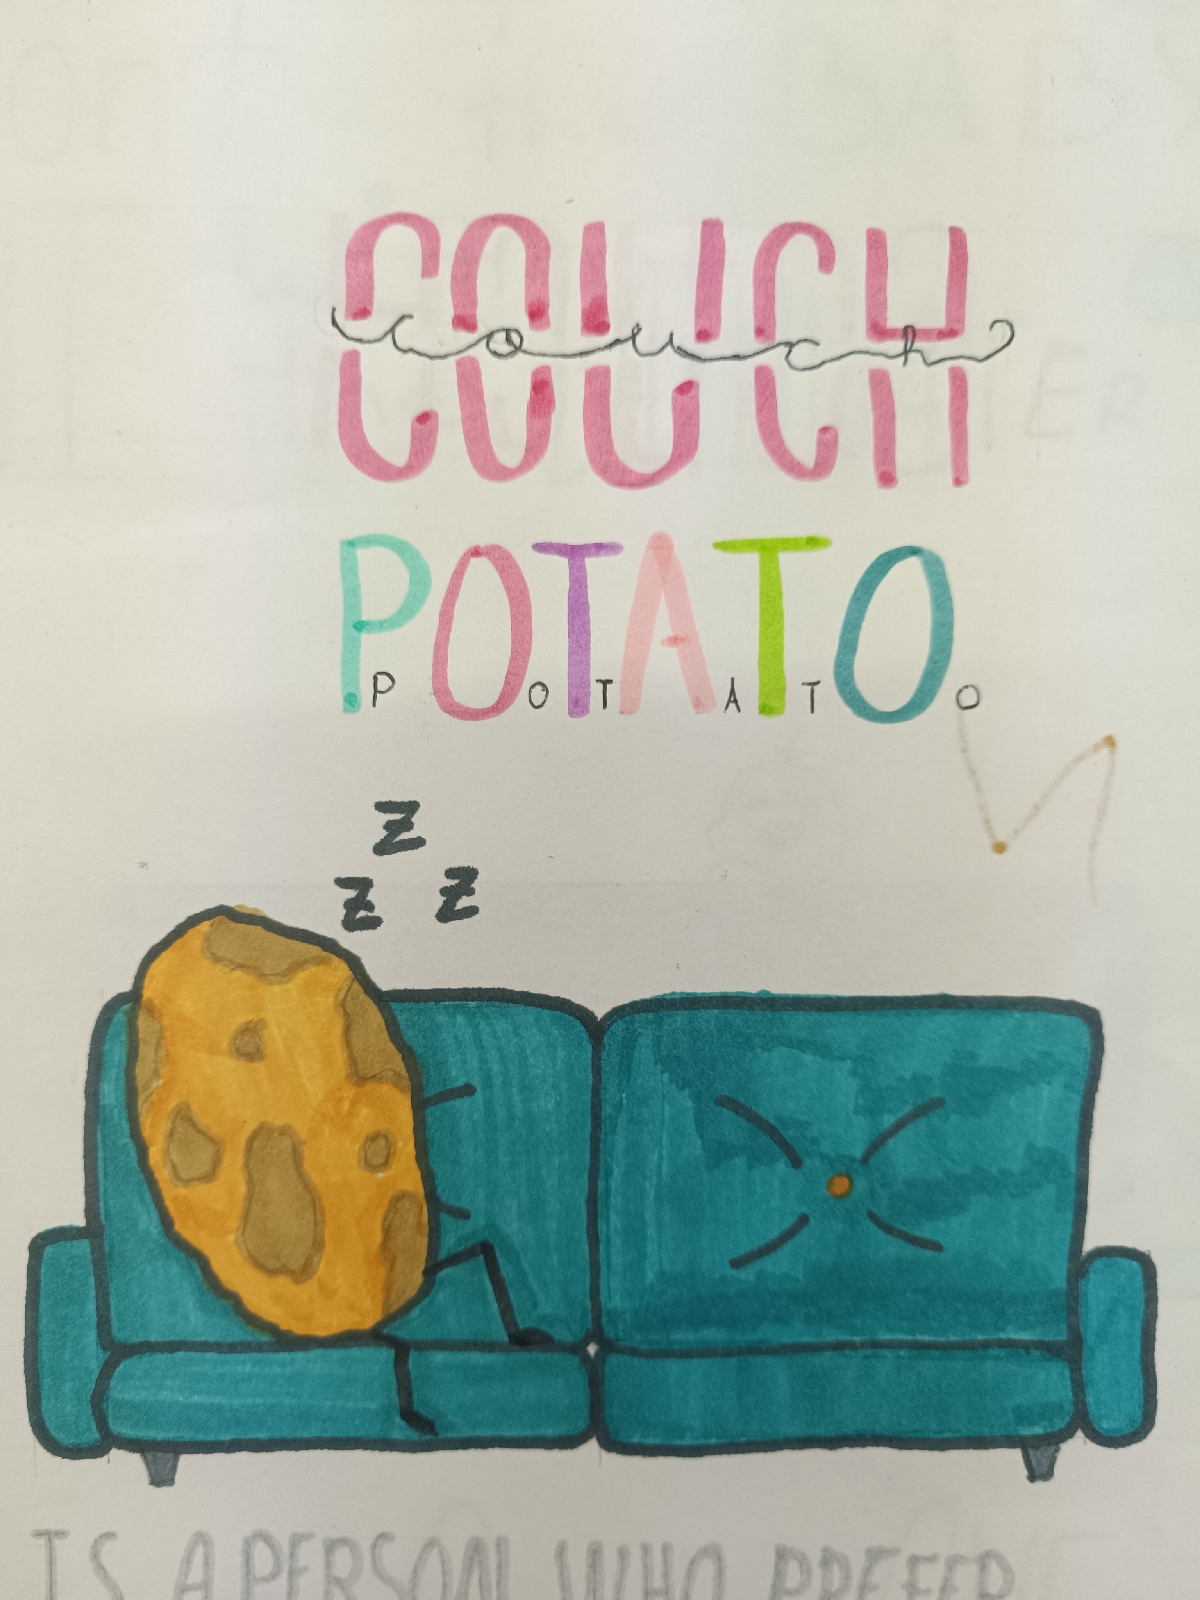 COUCH
couch
POTATO
POTATO
Z
Z Z
IS A PERSON WHO PREFER